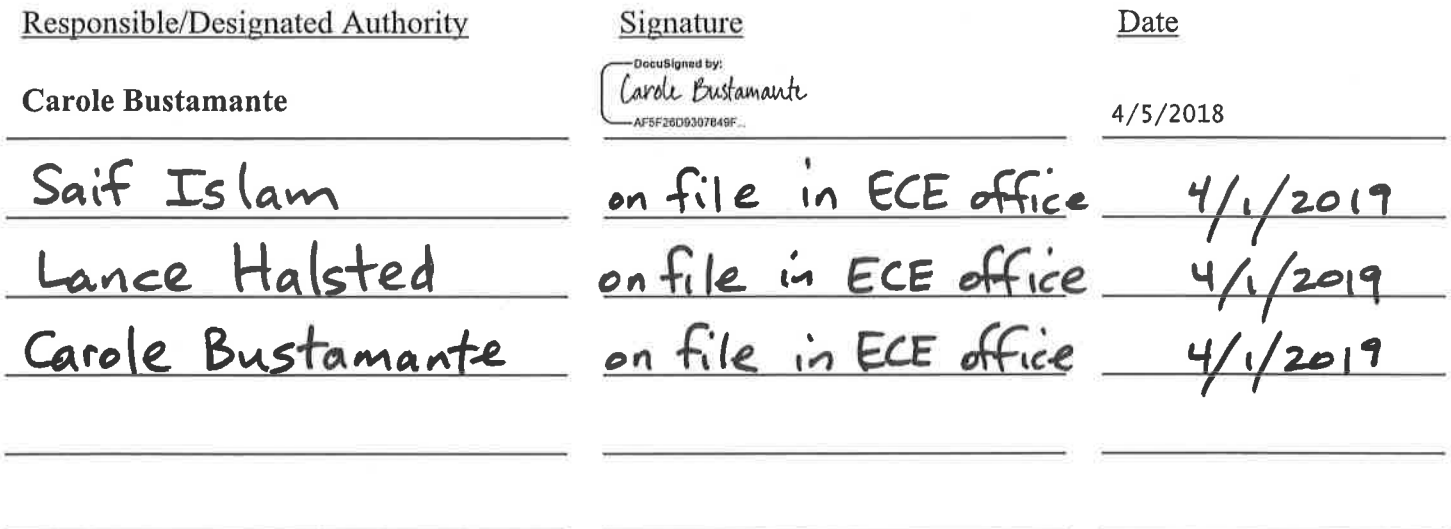 Responsible/Designated Authority Signature Date
DocuSigned by:
Carole Bustamante Carole Bustamante 4/5/2018
AF5F26D9307849F...
Saif Islam on file in ECE office 4/1/2019
Lance Halsted on file in ECE office 4/1/2019
Carole Bustamante on file in ECE office 4/1/2019